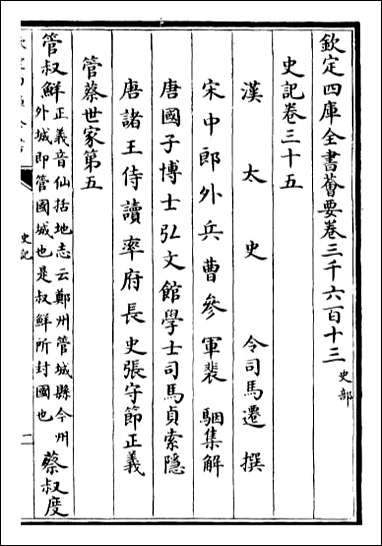 欽定四庫全書薈要卷三千六百十三 史部
史記卷三十五
漢太史令司馬遷撰
宋中郎外兵曹參軍裴駰集解
唐國子博士弘文館學士司馬貞索隱
唐諸王侍讀率府長史張守節正義
管蔡世家第五
管叔鮮正義音仙括地志云鄭州管城縣今州外城即管國城也是叔鮮所封國也蔡叔度
史記